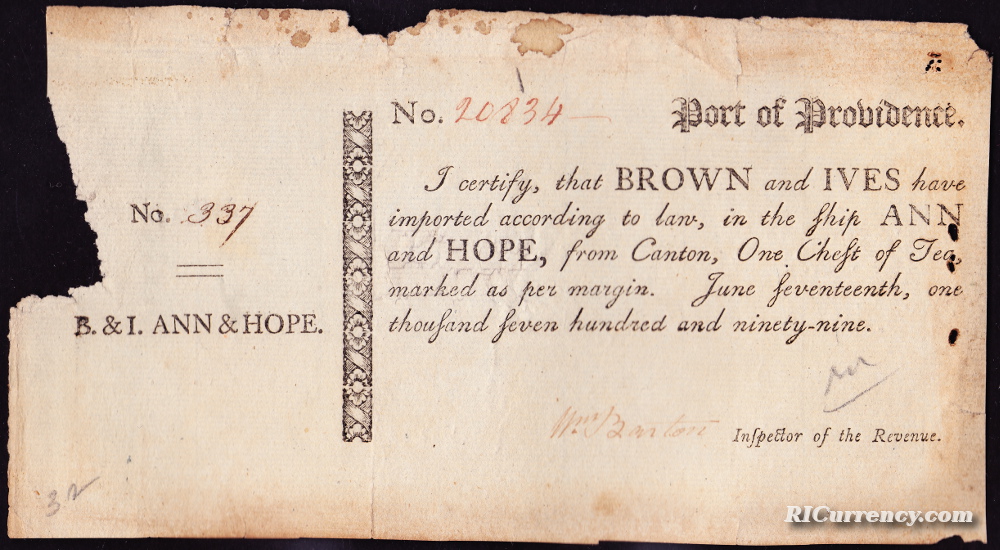 No. 337
B. & I. ANN & HOPE.
No. 20834
Port of Providence.
I certify, that BROWN and IVES have
imported according to law, in the ſhip ANN
and HOPE, from Canton, One Cheſt of Tea,
marked as per margin. June ſeventeenth, one
thouſand ſeven hundred and ninety-nine.
Wm Barton Inſpector of the Revenue.
32
RICurrency.com